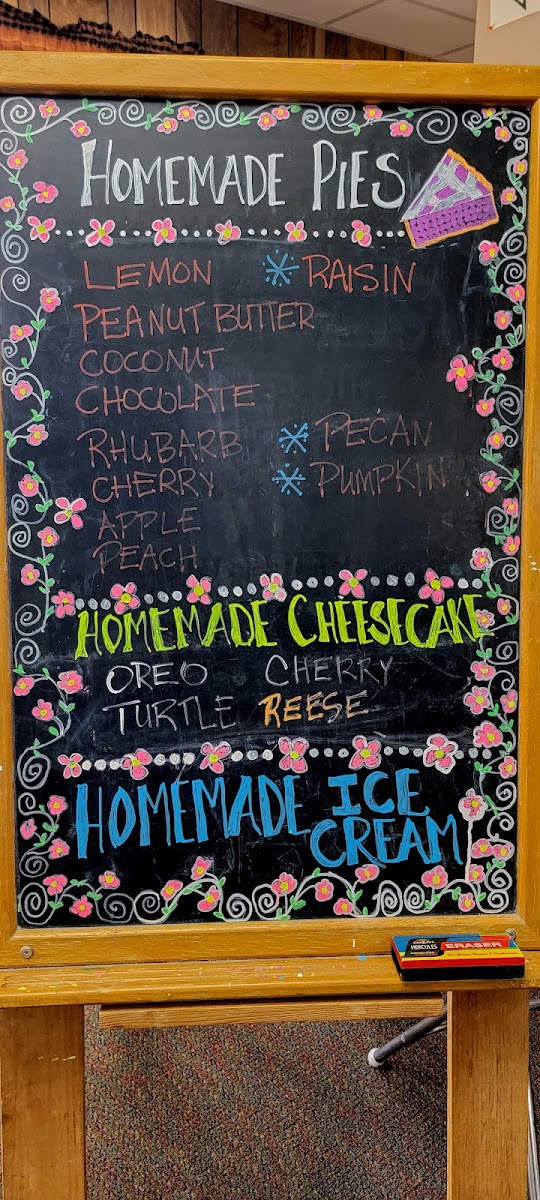 HOMEMADE PIES
LEMON * RAISIN
PEANUT BUTTER
COCONUT
CHOCOLATE
RHUBARB * PECAN
CHERRY * PUMPKIN
APPLE
PEACH
HOMEMADE CHEESECAKE
OREO CHERRY
TURTLE REESE
HOMEMADE ICE
CREAM
HERCULES ERASER